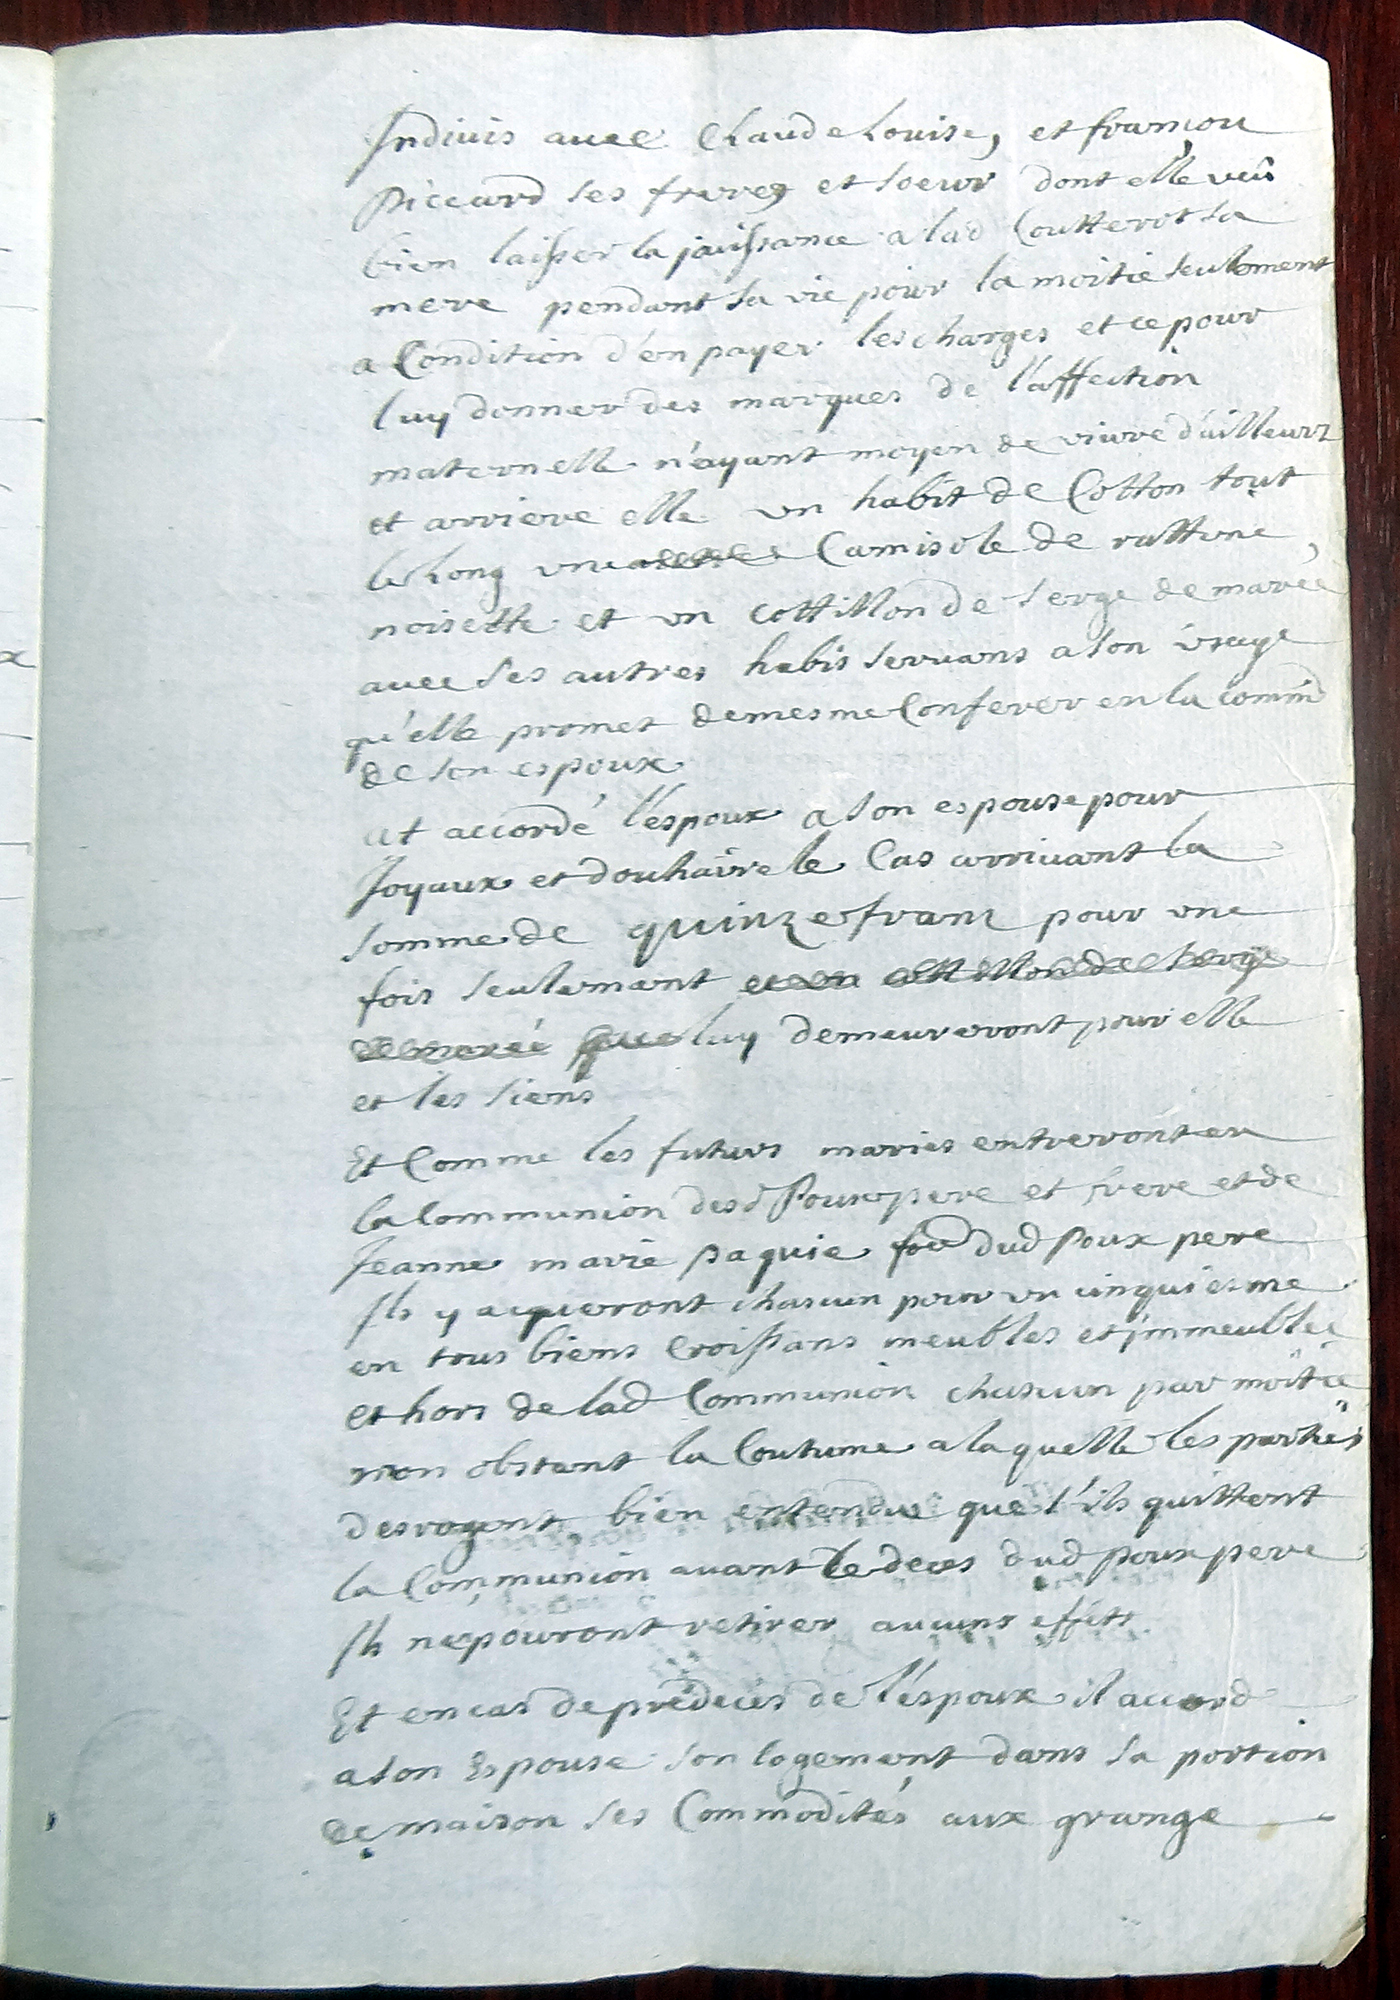 Indivis avec Claude Louise, et francou
Piccard ses freres et soeur dont elle veü
bien laisser la jouissance a lad Coutterot sa
mere pendant sa vie pour la moitie seulement
a Condition d'en payer les charges et ce pour
luy donner des marques de l'affection
maternelle n'ayant moyen de vivre d'ailleurs
et arriere elle un habit de Cotton tout
le long une Camisole de rattine,
noisette et un cottillon de serge de marée
avec ses autres habis servans a son usage
qu'elle promet de mesme Conferer en la comm
de son espoux
at accordé l'espoux a son espouse pour
Joyaux et douhaire le Cas arrivant la
somme de quinze franz pour une
fois seulement et un cottillon de serge
de marée que luy demeureront pour elle
et les siens
Et Comme les futurs mariés entreront en
la Communion desd Poux pere et frere et de
Jeanne marie paquie dud Poux pere
Ils y aqueront chascun pour un cinquiesme
en tous biens croissans meubles et immeubles
et hors de lad Communion chascun par moitie
non obstant la Coutume a laquelle les parties
desrogent bien entendu que s'ils quittent
la Communion avant le deces dud poux pere
Ils ne pouront retirer aucuns effets
Et en cas de predeces de l'espoux il accord
a son Espouse son logement dans sa portion
de maison ses Commodités aux grange